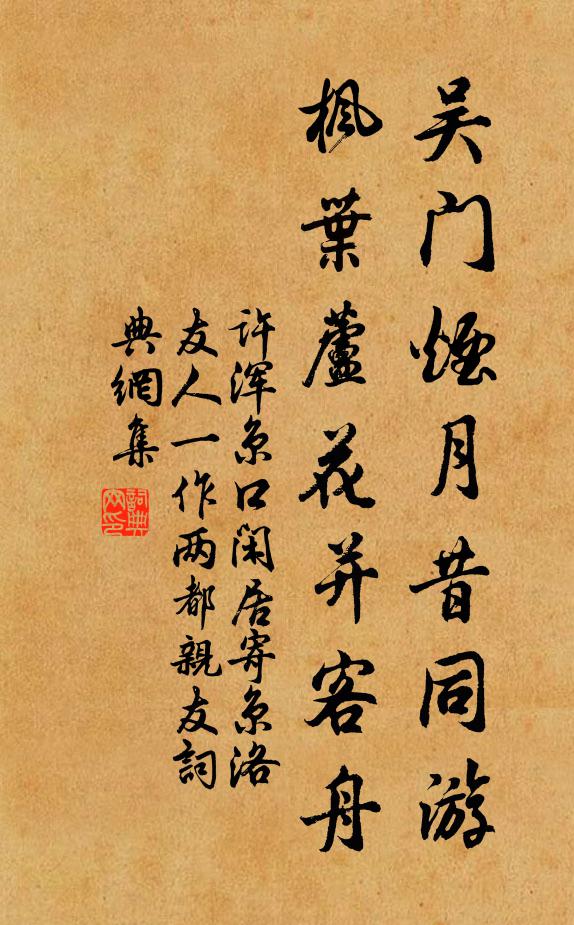 吴门煙月昔同游
枫葉蘆花并客舟
许浑京口闲居寄京洛
友人一作两都親友詞
典網集
詞典網印